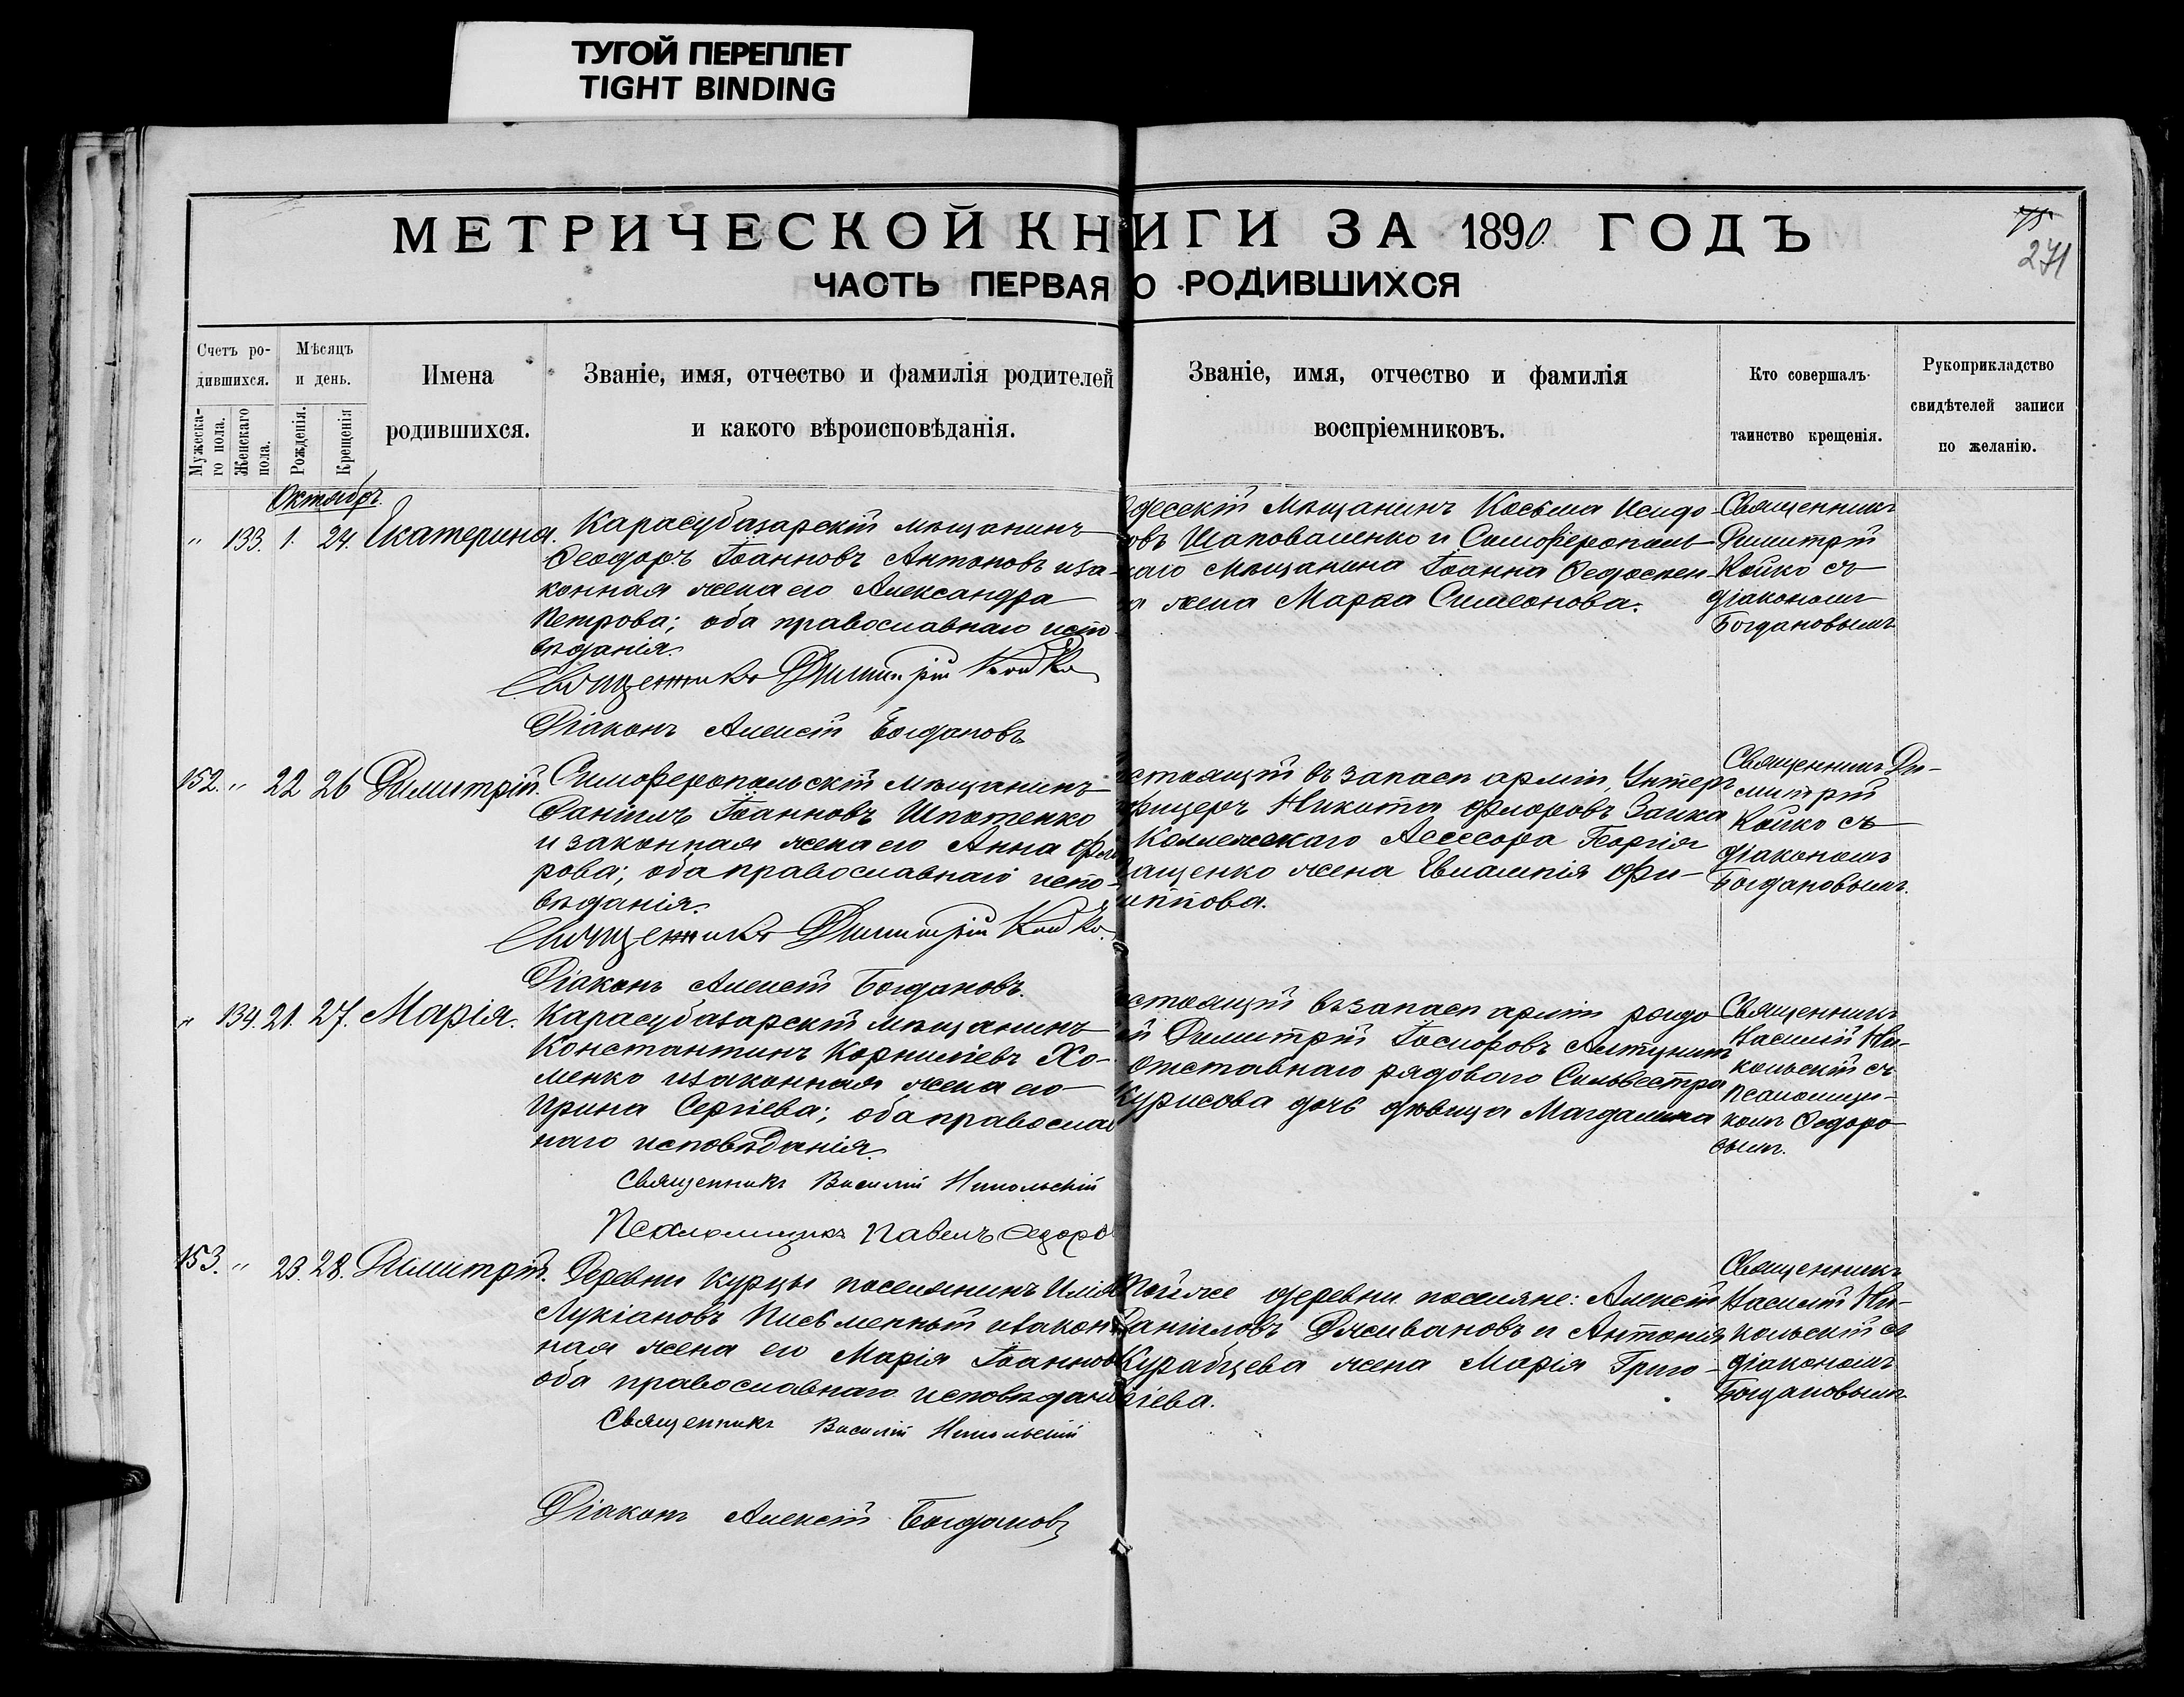 ТУГОЙ ПЕРЕПЛЕТ
TIGHT BINDING
МЕТРИЧЕСКОЙ КНИГИ ЗА 1890 ГОДЪ
ЧАСТЬ ПЕРВАЯ О РОДИВШИХСЯ
75
271
Счетъ ро-
дившихся.
Мужеска-
го пола.
Женскаго
пола.
Мѣсяцъ
и день.
Рожденія.
Крещенія
Имена
родившихся.
Званіе, имя, отчество и фамилія родителей
и какого вѣроисповѣданія.
Званіе, имя, отчество и фамилія
воспріемниковъ.
Кто совершалъ
таинство крещенія.
Рукоприкладство
свидѣтелей записи
по желанію.
Октябрь.
" 133. 1. 24. Екатерина.
Карасубазарскій мѣщанинъ
Ѳеодоръ Іоанновъ Антоновъ и за-
конная жена его Александра
Петрова; оба православнаго испо-
вѣданія.
Священникъ Димитрій Койко
Діаконъ Алексій Богдановъ
Одесскій Мѣщанинъ Косьма Исидо-
ровъ Шаповаленко и Симферополь-
скаго Мѣщанина Іоанна
жена Марѳа Симеонова.
Священникъ
Димитрій
Койко съ
діакономъ
Богдановымъ
152. " 22 26 Димитрій.
Симферопольскій мѣщанинъ
Даніилъ Іоанновъ Ипатенко
и законная жена его Анна Фло
рова; оба православнаго испо-
вѣданія.
Священникъ Димитрій Койко.
Діаконъ Алексій Богдановъ.
состоящій въ запасѣ арміи, Унтеръ
фицеръ Никита Флоровъ Заика
Коллежскаго Ассесора Георгія
ащенко жена Евлампія Фи-
липпова.
Священникъ Ди-
митрій
Койко съ
діакономъ
Богдановымъ.
" 134. 21. 27. Марія.
Карасубазарскій мѣщанинъ
Константинъ Корниліевъ Хо-
менко и законная жена его
Ирина Сергіева; оба православ
наго исповѣданія.
Священникъ Василій Никольскій
Псаломщикъ Павелъ Ѳедоро
состоящій въ запасѣ арміи рядо
й Димитрій
Отставнаго рядоваго Сильвестра
Курисова дочь дѣвица Магдалина
Священникъ
Василій Ни-
кольскій съ
псаломщи-
комъ Ѳедоро
вымъ.
153. " 23. 28. Димитрій.
Деревни Курцы поселянинъ Илія
Лукіановъ Письменный и закон
ная жена его Марія Іоаннов
оба православнаго исповѣдані
Священникъ Василій Никольскій
Діаконъ Алексій Богдановъ
Той же деревни поселяне: Алексій
Даніиловъ Дживановъ и Антонія
Курабцева жена Марія Григо-
ріева.
Священникъ
Василій Ни-
кольскій съ
діакономъ
Богдановымъ